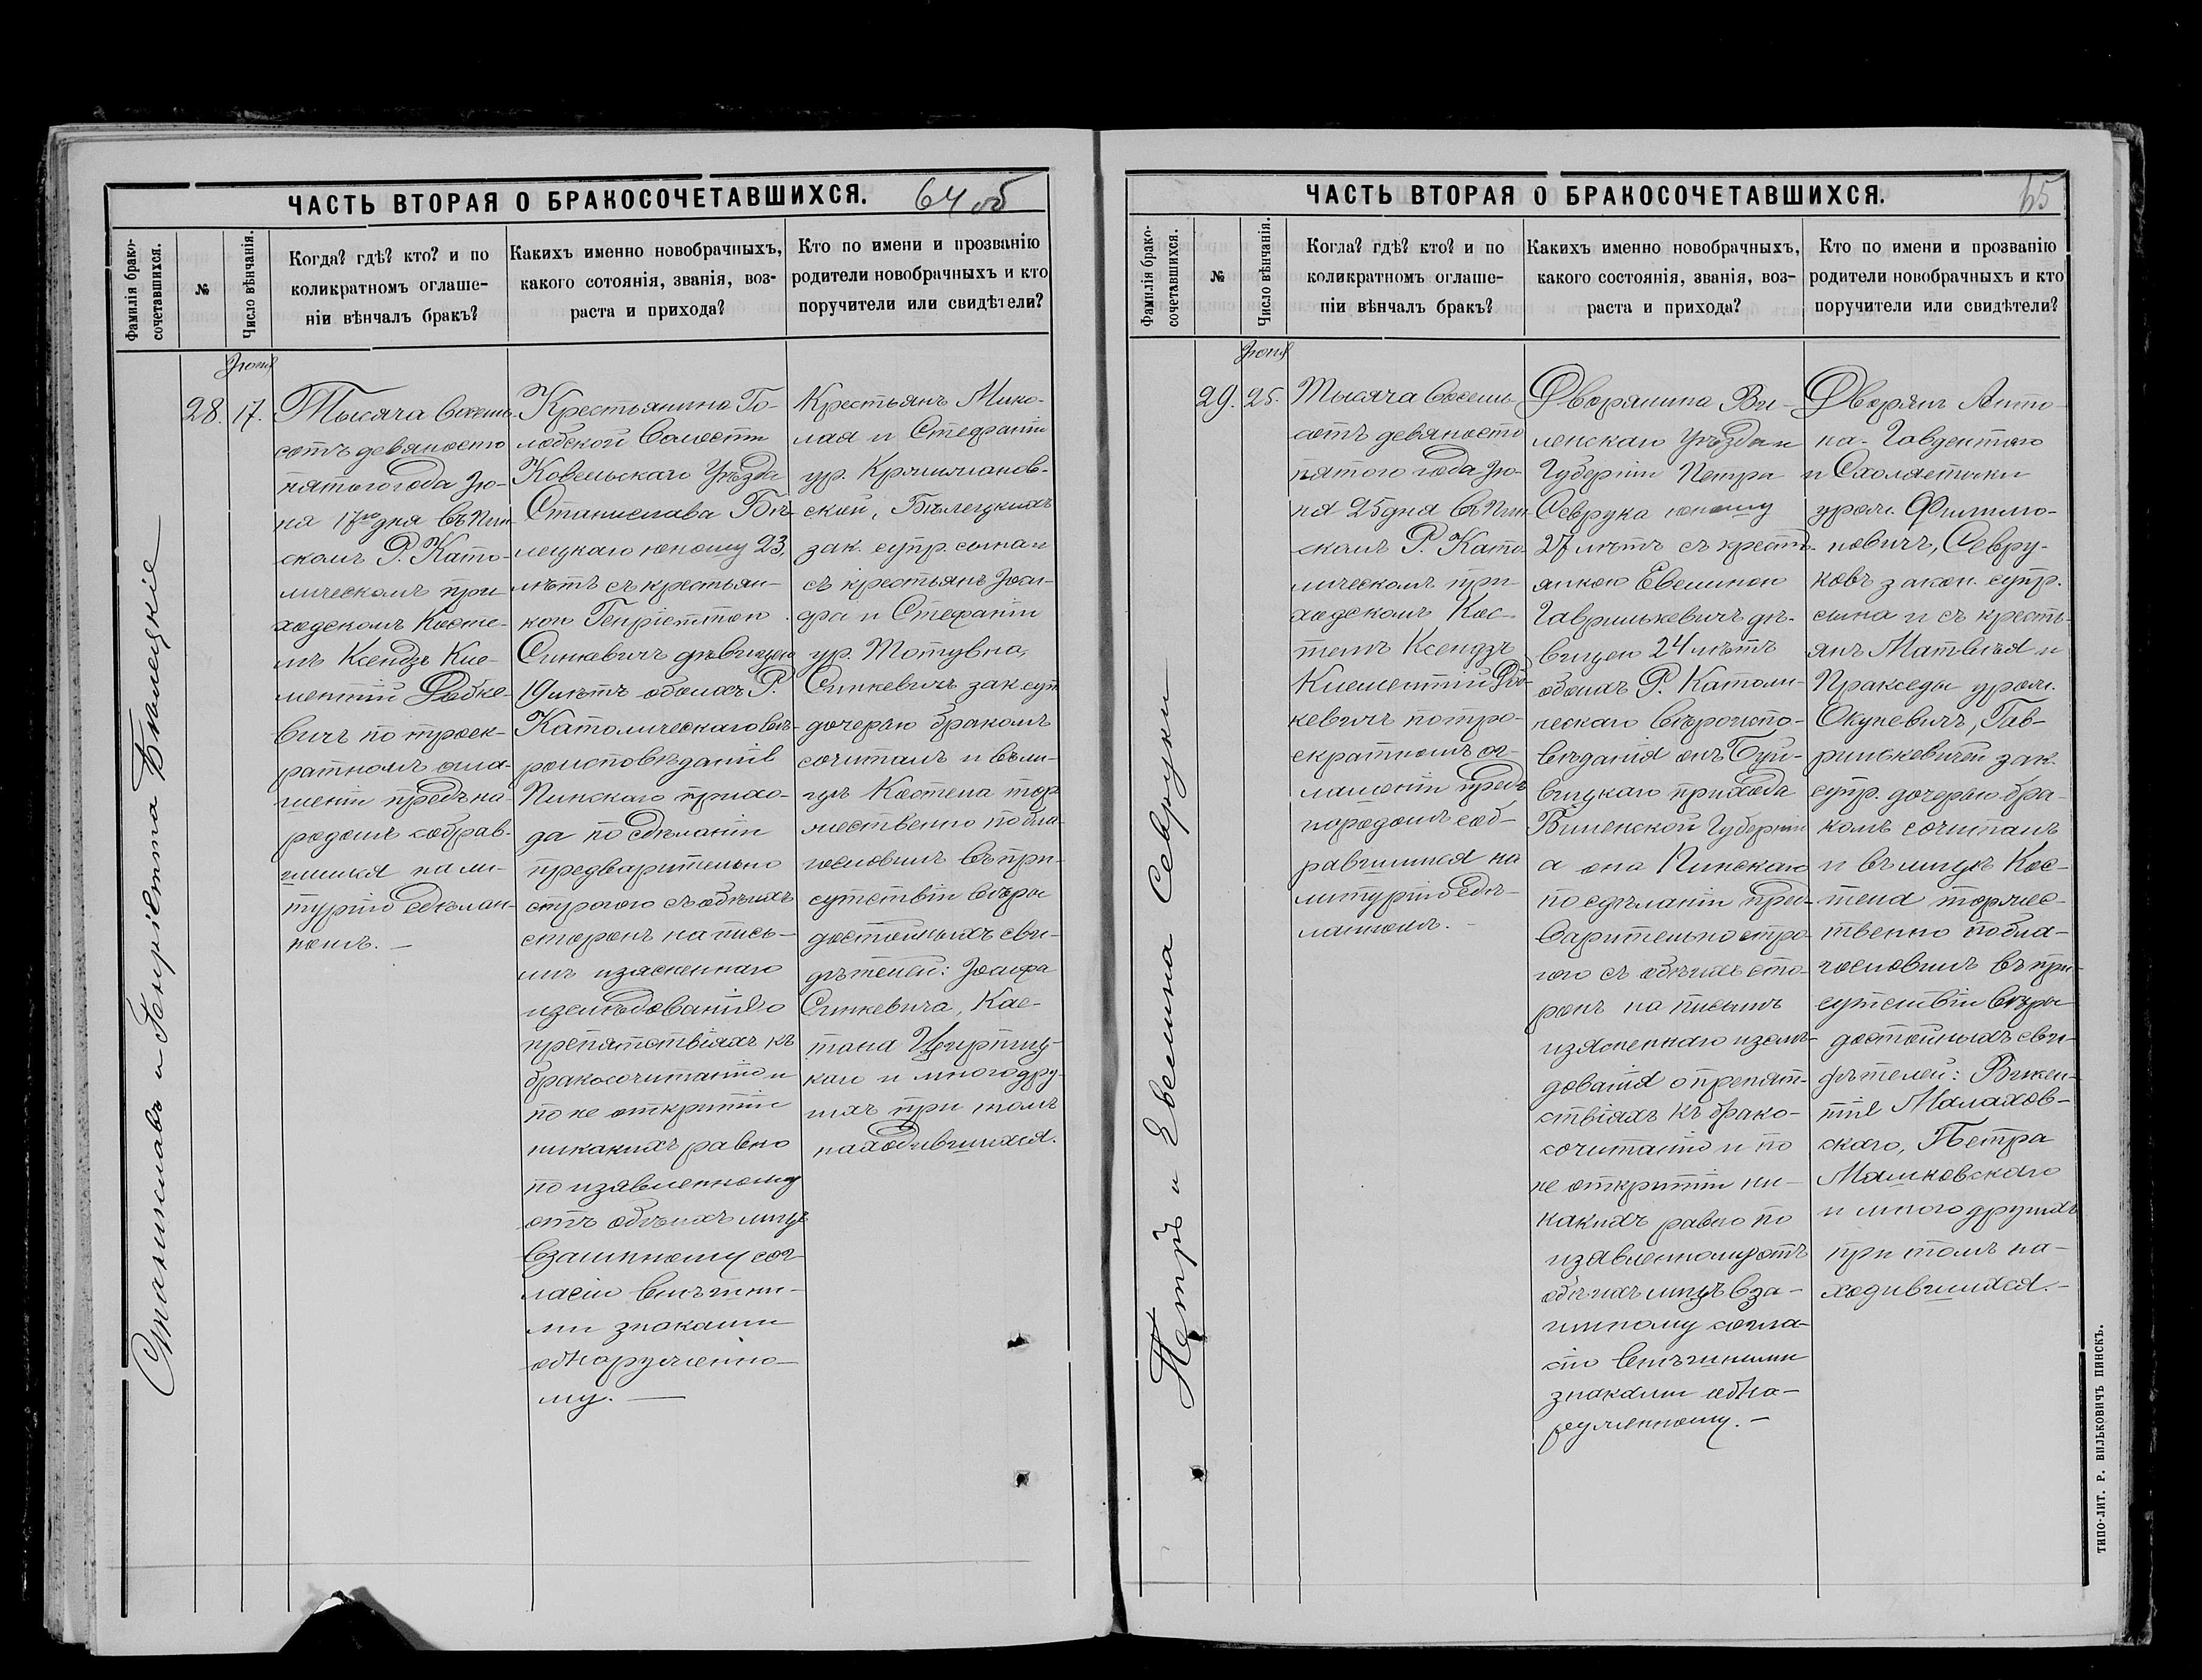 ЧАСТЬ ВТОРАЯ О БРАКОСОЧЕТАВШИХСЯ.
64 об
Фамилія брако-
сочетавшихся.
№
Число вѣнчанія.
Когда? гдѣ? кто? и по
коликратномъ оглаше-
ніи вѣнчалъ бракъ?
Какихъ именно новобрачныхъ,
какого сотоянія, званія, воз-
раста и прихода?
Кто по имени и прозванію
родители новобрачныхъ и кто
поручители или свидѣтели?
Станиславъ и Генріетта Бѣлецкіе
Іюня
28.
17.
Тысяча восемь-
сотъ девяносто
пятого года Ію-
ня 17го дня въ Пин-
скомъ Р. Като-
лическомъ при-
ходскомъ Косте-
лѣ Ксендзъ Кле-
ментій
вичъ по троек-
ратномъ огла-
шеніи предъ на-
родомъ собрав-
шимся на ли-
тургію сдѣлан-
номъ. —
Крестьянина Го-
лобской Волости
Ковельскаго Уѣзда
Станислава Бѣ-
лецкаго юношу 23
лѣтъ съ крестьян-
кою Генріеттою
Синкевичъ дѣвицею
19 лѣтъ обоихъ Р.
Католическаго вѣ-
роисповѣданія
Пинскаго прихо-
да по сдѣланіи
предварительно
строгого съ обѣихъ
сторонъ на пись-
мѣ изясненнаго
изслѣдованія о
препятствіяхъ къ
бракосочитанію и
по не открытіи
никакихъ равно
по изявленному
отъ обѣихъ лицъ
взаимному сог-
ласію внѣшни-
ми знаками
обнаруженно-
му. —
Крестьянъ Мико-
лая и Стефаніи
ур.
ской, Бѣлецкихъ
зак. супр. сына и
съ крестьянъ Іоси-
фа и Стефаніи
ур. Мотувна,
Синкевичъ зак. супр.
дочерью бракомъ
сочиталъ и въ ли-
цѣ Костела тор-
жественно побла-
гословилъ въ при-
сутствіи вѣры
достойныхъ сви-
дѣтелей: Іосифа
Синкевича, Кае-
тана
каго и много дру-
гихъ при томъ
находившихся.
ЧАСТЬ ВТОРАЯ О БРАКОСОЧЕТАВШИХСЯ.
65
Фамилія брако-
сочетавшихся.
№
Число вѣнчанія.
Когда? гдѣ? кто? и по
коликратномъ оглаше-
ніи вѣнчалъ бракъ?
Какихъ именно новобрачныхъ,
какого состоянія, званія, воз-
раста и прихода?
Кто по имени и прозванію
родители новобрачныхъ и кто
поручители или свидѣтели?
Петръ и Евелина Севруки
Іюня
29.
25.
Тысяча восемь-
сотъ девяносто
пятого года Ію-
ня 25 дня въ Пин-
скомъ Р. Като-
лическомъ при-
ходскомъ Кос-
телѣ Ксендзъ
Клементій
кевичъ по тро-
екратномъ ог-
лашеніи предъ
народомъ соб-
равшимся на
литургію сдѣ-
ланномъ. —
Дворянина Ви-
ленскаго Уѣзда и
Губерніи Петра
Севрука юношу
27 лѣтъ съ кресть-
янкою Евелиною
Гаврилькевичъ дѣ-
вицею 24 лѣтъ
обоихъ Р. Католи-
ческаго вѣроиспо-
вѣданія онъ Буй-
вицкаго прихода
Виленской Губерніи
а она Пинскаго
по сдѣланіи пред-
варительно стро-
гого съ обѣихъ сто-
ронъ на письмѣ
изясненнаго изслѣ-
дованія о препят-
ствіяхъ къ брако-
сочитанію и по
не открытіи ни-
какихъ равно по
изявленному отъ
обѣихъ лицъ вза-
имному согла-
сію внѣшними
знаками обна-
руженному. —
Дворянъ Анто-
на-Гавдентого
и Схоластики
урож. Филипо-
новичъ, Севру-
ковъ закон. супр.
сына и съ кресть-
янъ Матвѣя и
Пракседы урож.
Окуневичъ, Гав-
рилькевичей зак.
супр. дочерью бра-
комъ сочиталъ
и въ лицѣ Кос-
тела торжес-
твенно побла-
гословилъ въ при-
сутствіи вѣры
достойныхъ сви-
дѣтелей: Викен-
тія Малахов-
скаго, Петра
Машковскаго
и много другихъ
при томъ на-
ходившихся. —
ТИПО-ЛИТ. Р. ВИЛЬКОВИЧЪ ПИНСКЪ.